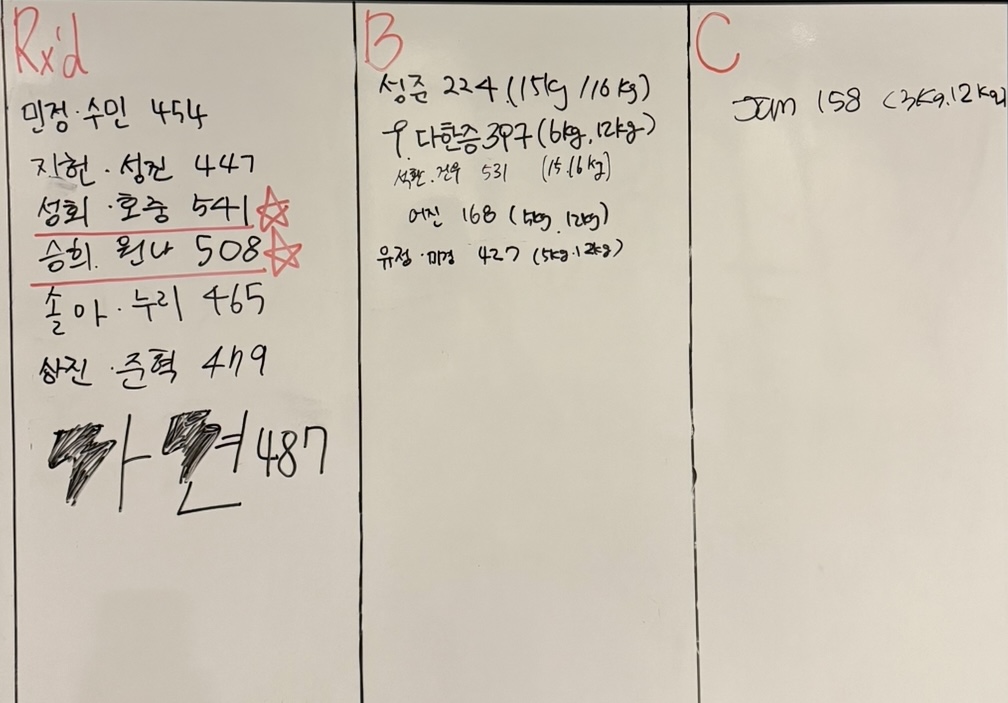 Rx'd
민정·수민 454
지헌·성진 447
성회·호중 541
승희. 원나 508
솔아·누리 465
상진·준혁 479
가 연 487
B
성준 224 (15kg/16kg)
우. 다한증 397 (6kg, 12kg)
석환·건우 531 (15.16kg)
어진 168 (5kg, 12kg)
유정·미경 427 (5kg.12kg)
C
Jam 158 (3kg.12kg)